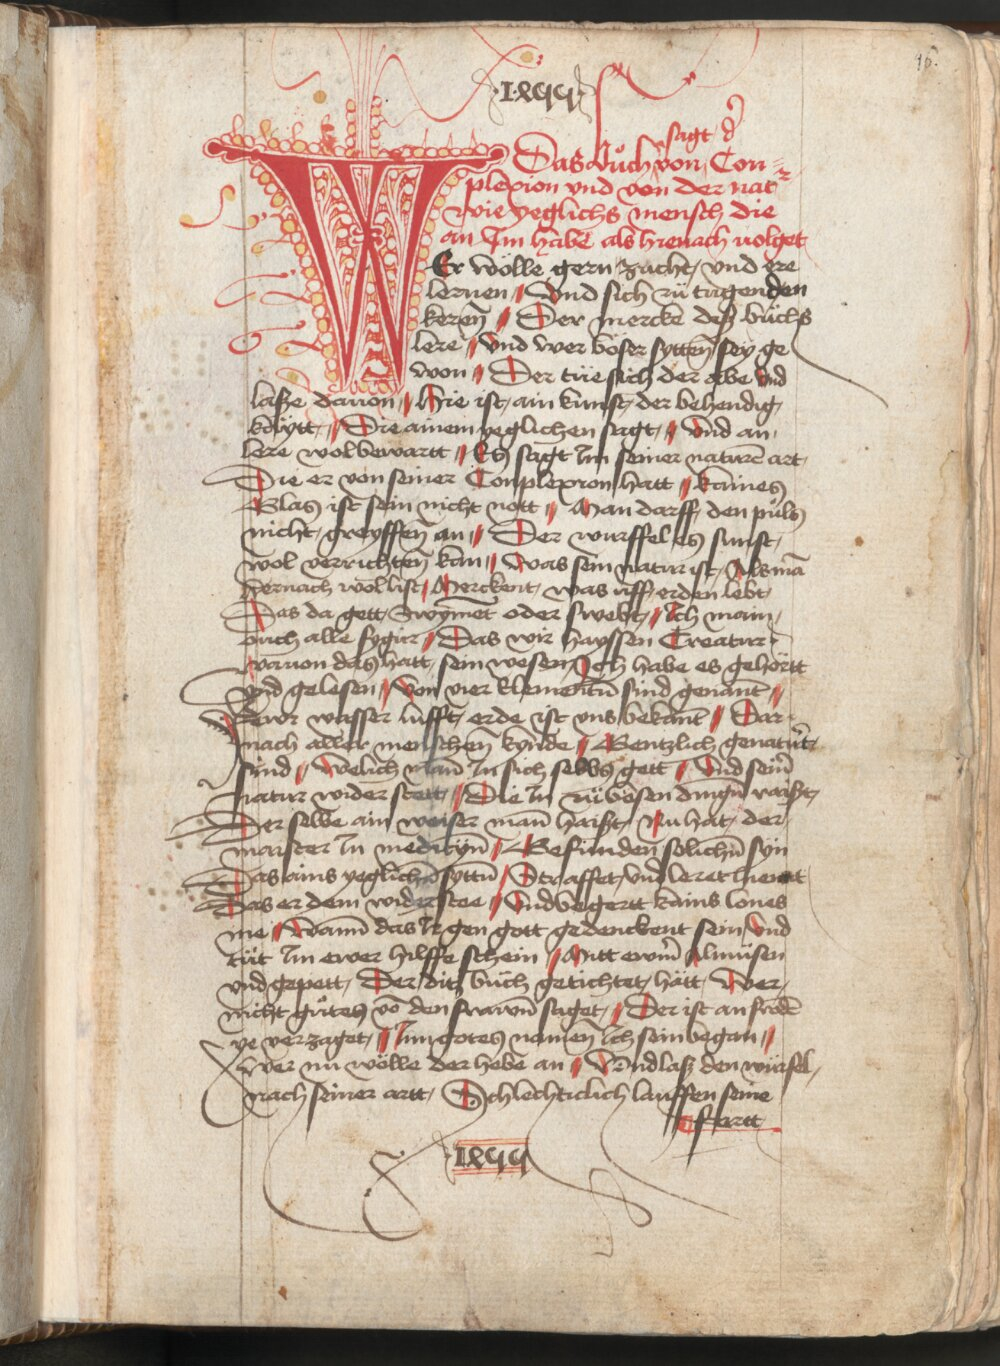 16.
·LXXX·
Das Bůch sagt dˀ von Com=
plexion vnd von der nat~
wie yeglichs mensch die
an Im habe als hienach uolget
WEr wölle gern zucht vnd ere
lernen // Vnd sich zü tugenden
keren // Der mercke disz büchs
lere // Vnd wer böser sytten sey ge
won // Der tüe sich der abe Vnd
lasze dauon // Hie ist ain kunst der behendig
kaÿtt // Die ainem yeglichen sagt // Vnd an
lere wolbewartt // Es sagt Im seiner naturē art
Die er von seiner Complexion hatt // kaines
Glas ist sein nicht nott // Man darff den puls
nicht greyffen an // Der wurffel es sunst
wol verrichten kan // Was sein natur ist Als mā
hernach wol list // Merckent was uff erden lebt
Das da gett Swÿmet oder swebt // Ich main
ouch alle fygur // Das wir hayssen Creatur
Wauon das hatt sein wesen Ich habe es gehörtt
Vnd gelesen // Von vier Elementū sind genant //
Fewr wasser lufft erde ist vns bekant // Dar
nach aller menschen kynde // Gentzlich genatürt
sind // Welich man In sich selbs gett // Vnd sein
natur wider stett // Die In zü bösen dingn raißt
Der selbe ain weiser man haißt Nu hat der
maister In medicÿn // Gefunden solichn syn
Das ains yeglichn syttn // Straffet vnd leret hiemit
Das er dem widerstee // Vnd begertt kains lones
me // Wann das Ir gen gott gedenckent sein Vnd
tüt Im ewer hilffe schein // Mitt ewrm Almüsen
vnd gepett Der ditz büch getichtet hätt Wer
nicht gůtes vō den frawen saget // Der ist an frödē
ye verzaget // Inn gotes namen Ich sein began //
Wer nu wölle der hebe an // Vnd lasz den würfel
nach seiner artt Schlechticlich lauffen seine
fartt
LXXX